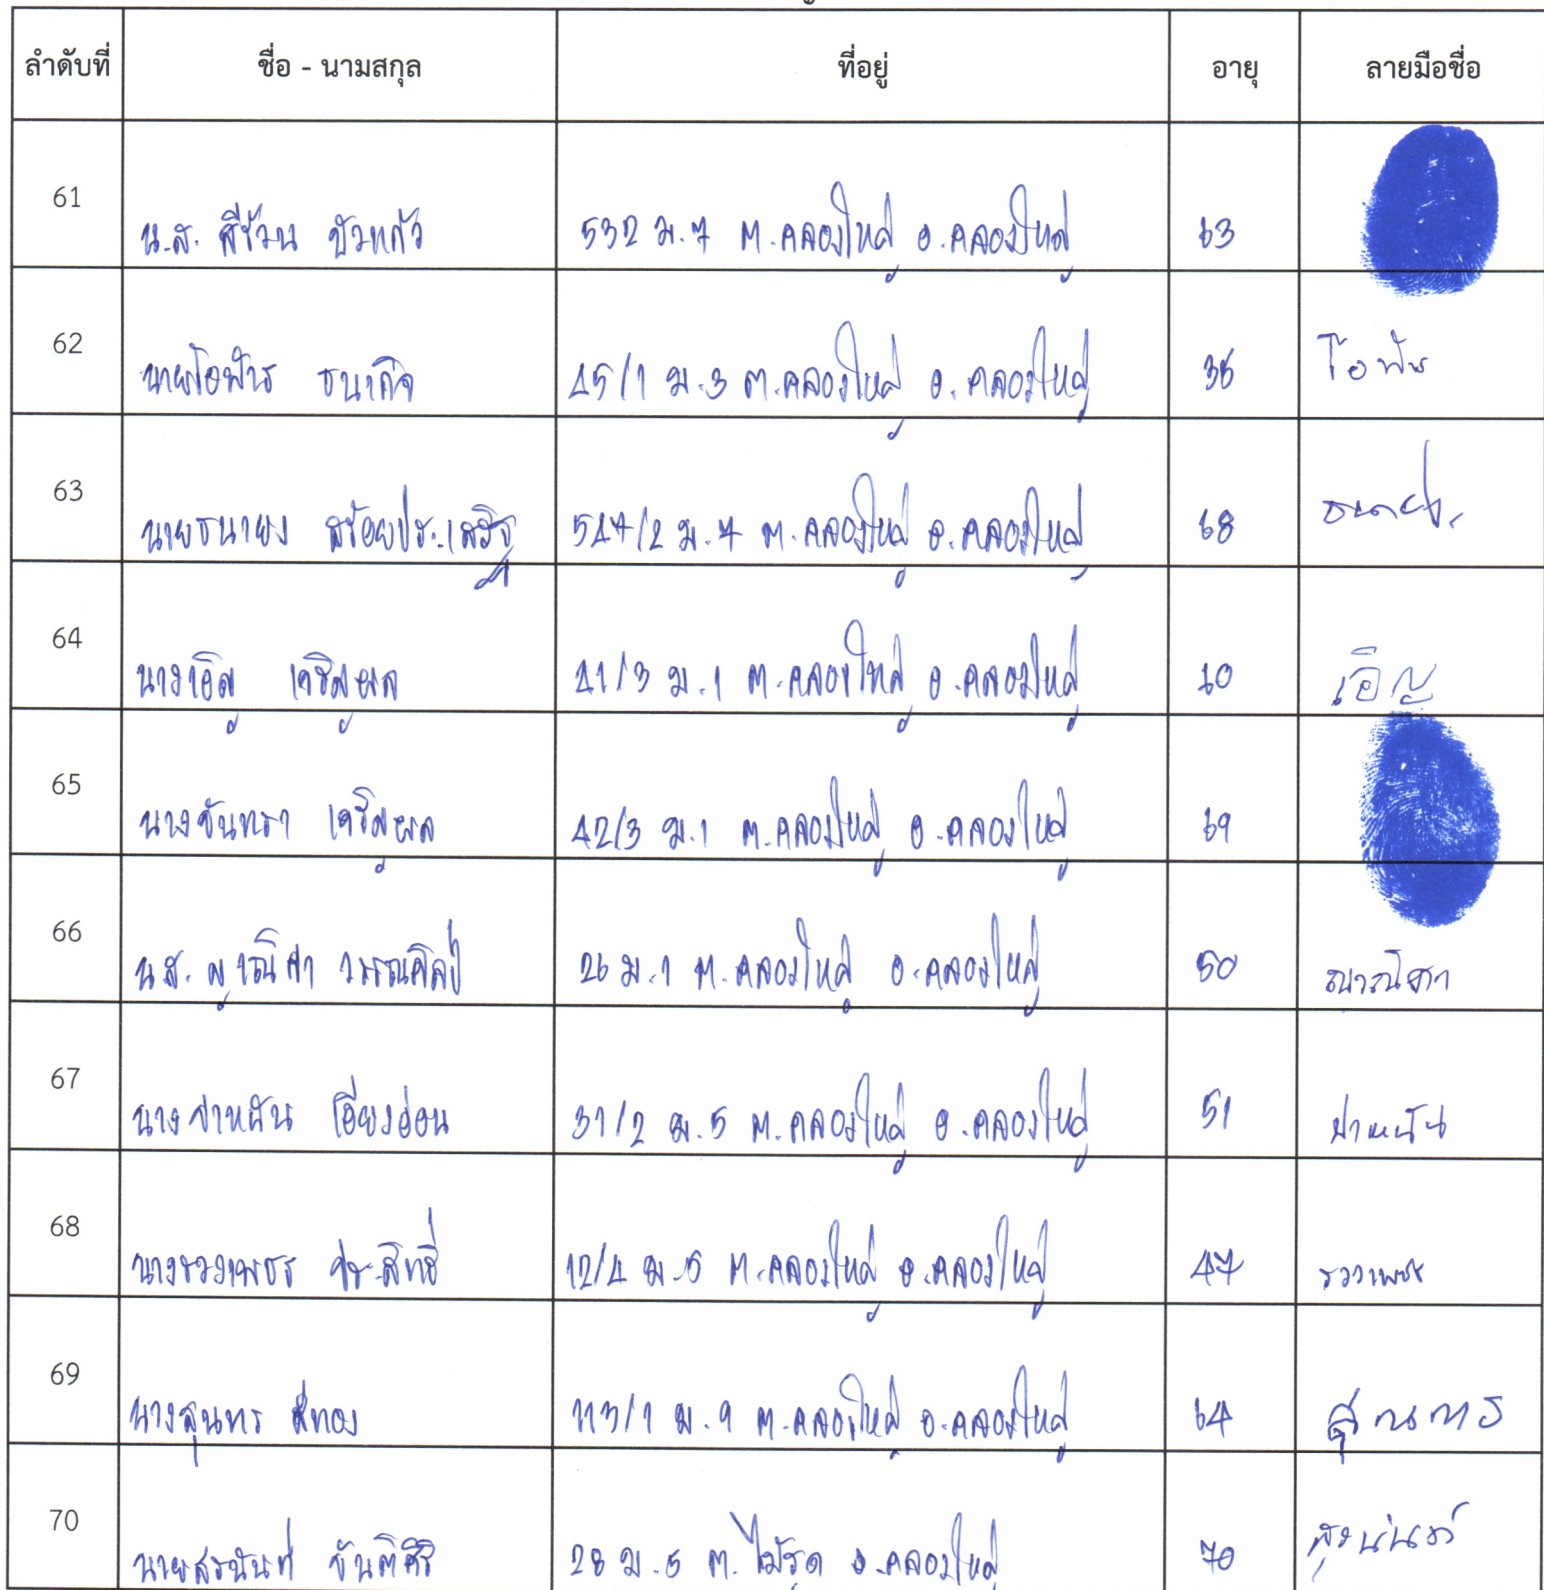 ลำดับที่ ชื่อ - นามสกุล ที่อยู่ อายุ ลายมือชื่อ
61 น.ส. สีช้วน บัวแก้ว 532 ม.7 ต.คลองใหญ่ อ.คลองใหญ่ 63
62 นายโอฬาร ธนากิจ 45/1 ม.3 ต.คลองใหญ่ อ.คลองใหญ่ 36 โอฬาร
63 นายธนายง สร้อยประเสริฐ 547/2 ม.7 ต.คลองใหญ่ อ.คลองใหญ่ 68
64 นางเอิญ เจริญผล 41/3 ม.1 ต.คลองใหญ่ อ.คลองใหญ่ 60 เอิญ
65 นางจันทรา เจริญผล 42/3 ม.1 ต.คลองใหญ่ อ.คลองใหญ่ 69
66 น.ส. วรรณศิลป์ 26 ม.1 ต.คลองใหญ่ อ.คลองใหญ่ 50
67 นาง เอี่ยมอ่อน 31/2 ม.5 ต.คลองใหญ่ อ.คลองใหญ่ 51
68 นางรวงเพชร ประสิทธิ์ 12/4 ม.5 ต.คลองใหญ่ อ.คลองใหญ่ 47 รวงเพชร
69 นางสุนทร สีทอง 113/1 ม.9 ต.คลองใหญ่ อ.คลองใหญ่ 64 สุนทร
70 นายสรนันท์ ขันติศิริ 28 ม.5 ต.ไม้รูด อ.คลองใหญ่ 70